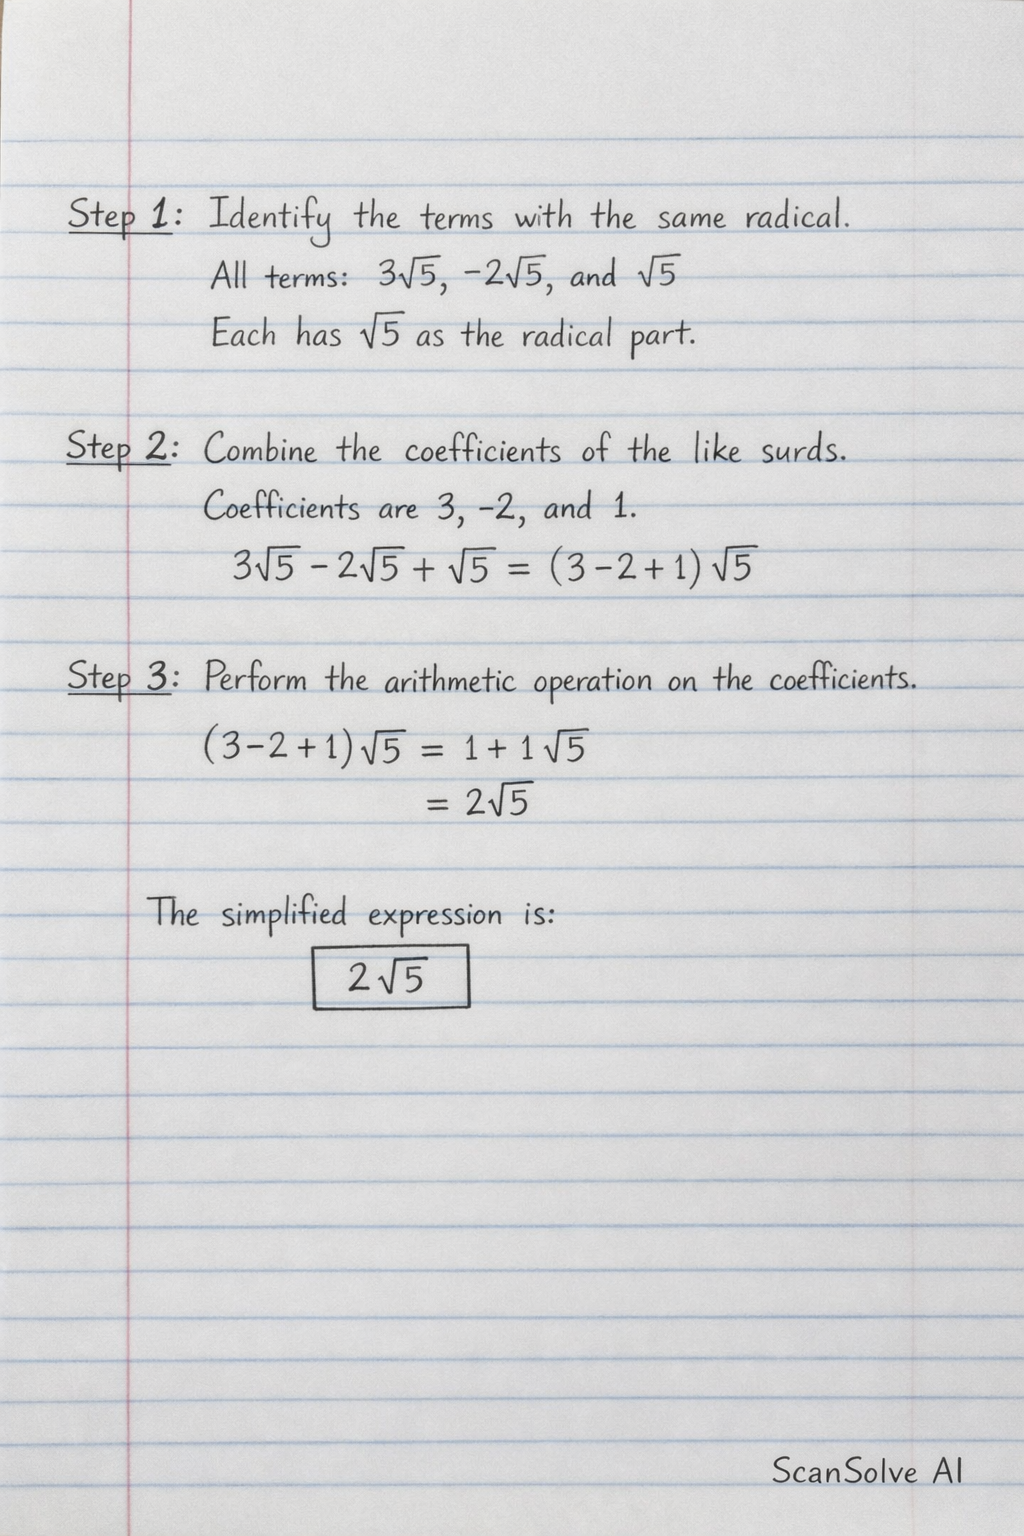 Step 1: Identify the terms with the same radical.
All terms: 3√5, −2√5, and √5
Each has √5 as the radical part.
Step 2: Combine the coefficients of the like surds.
Coefficients are 3, −2, and 1.
3√5 − 2√5 + √5 = (3 − 2 + 1) √5
Step 3: Perform the arithmetic operation on the coefficients.
(3 − 2 + 1) √5 = 1 + 1 √5
= 2√5
The simplified expression is:
2√5
ScanSolve AI